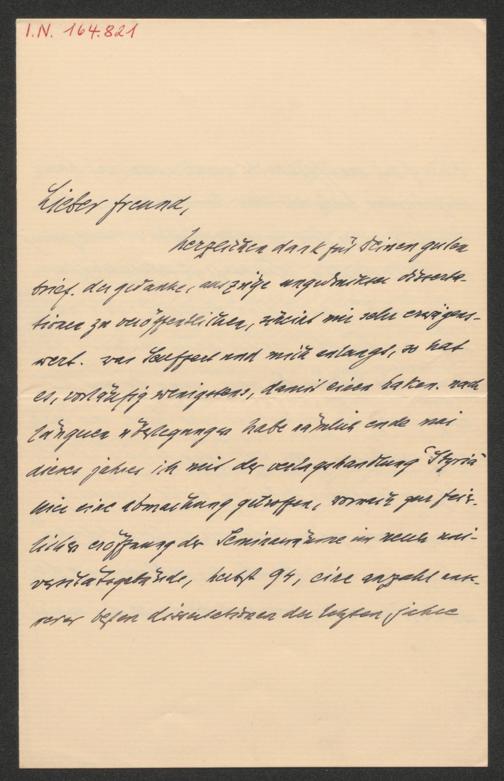 I.N. 164.821
Lieber freund,
herzlichen dank für deinen guten
brief. der gedanke, auszüge ungedruckter disserta-
tionen zu veröffentlichen, scheint mir sehr erwägens-
wert. was Seuffert und mich anlangt, so hat
es, vorläufig wenigstens, damit einen haken. nach
längeren überlegungen habe nämlich ende mai
dieses jahres ich mit der verlagshandlung "Styria"
hier eine abmachung getroffen, wonach zur feier-
lichen eröffnung der Seminarräume im neuen uni-
versitätsgebäude, herbst 94, eine anzahl uns-
erer besten dissertationen der letzten jahre